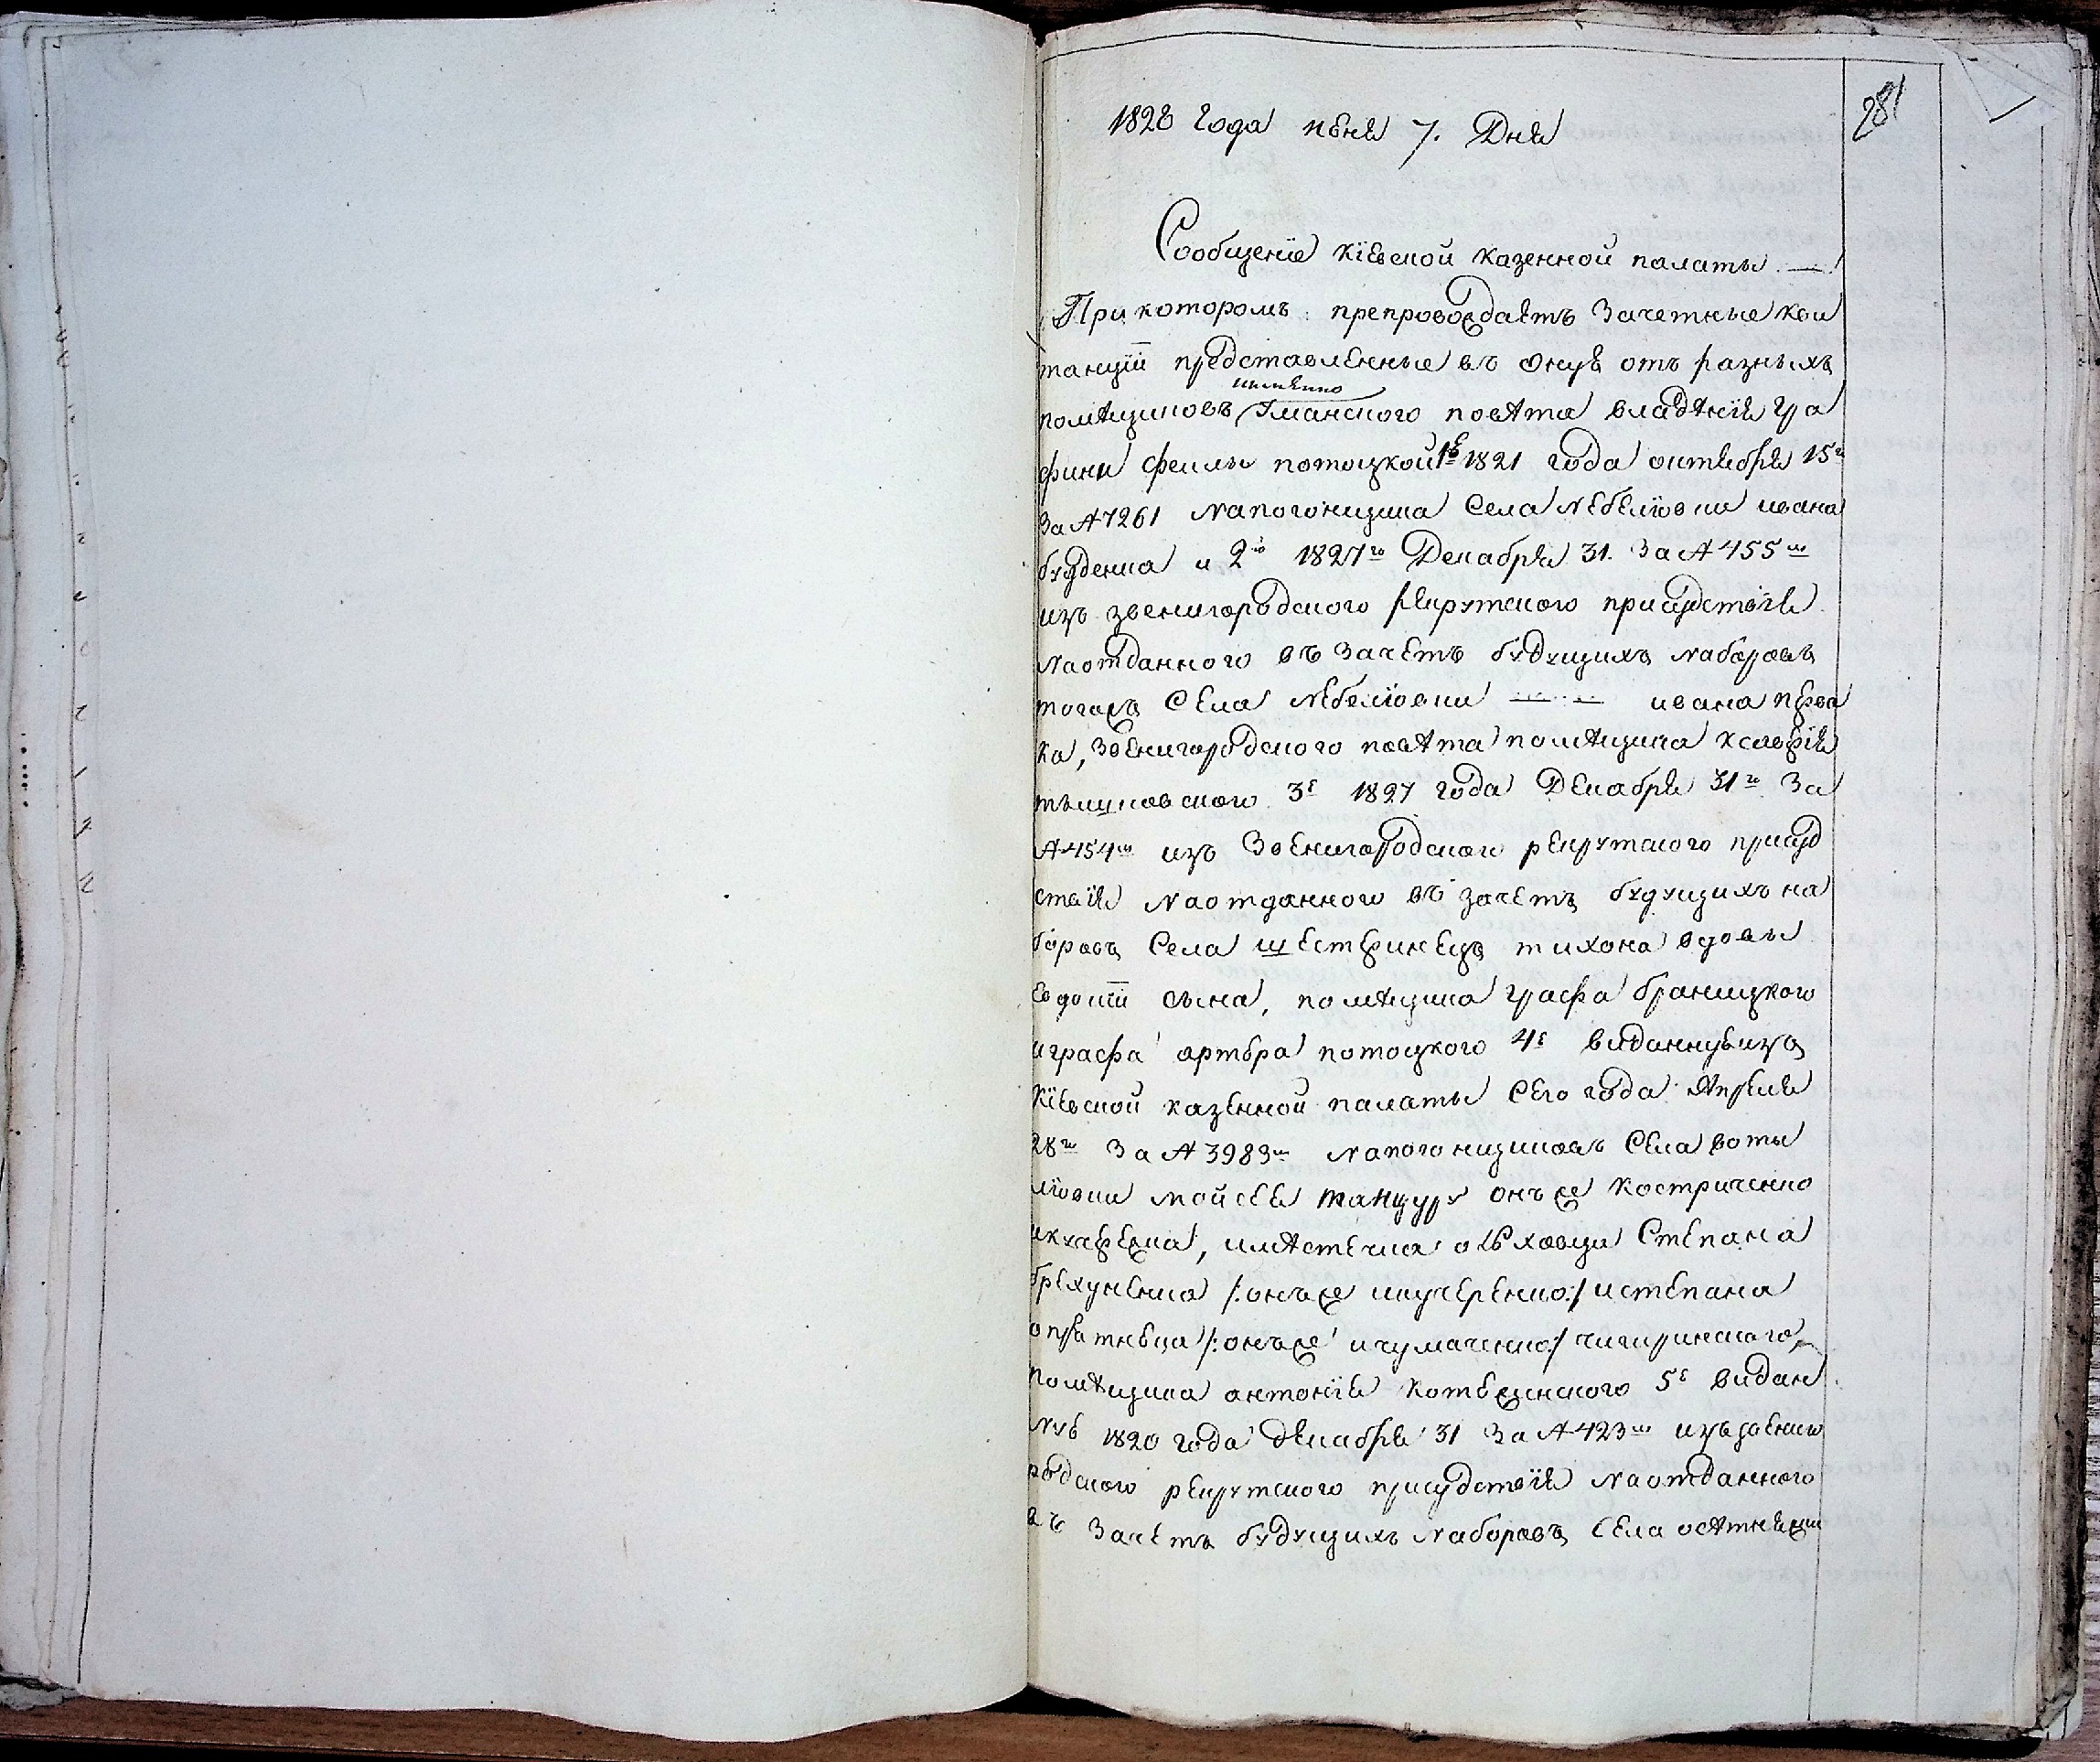 281
1828 года июня 7. Дня
Сообщеніе Кіевской казенной палаты. —
При которомъ препровождаетъ Зачетные кви
танціи предствавленные въ оную отъ разныхъ
имменно
помѣщиковъ Уманского повѣта владѣнія гра
фини феклы потоцкой 1ю 1821 года октября 15го
За № 7261 Напогонщика Села Небеліовки ивана
буденка и 2ю 1827го Декабря 31. За № 455м
изъ звенигородского рекрутского присудствія
Наотданного въ Зачетъ будущихъ наборовъ
тогожъ Села Небеліовки ивана перва
ка, Звенигородского повѣта помѣщика ксаверія
тышковского 3е 1827 года Декабря 31го За
№ 454м изъ Звенигородского рекрутского присуд
ствія Наотданного въ зачетъ будущихъ на
боровъ Села шестеринецъ тихона вдовы
Евдокіи сына, помѣщика графа браницкого
играфа артюра потоцкого 4е виданную изъ
Кіевской казенной палаты Сего года Апреля
28го За № 3983м Напогонщиковъ Села воты
лиовки мойсея танцуру онъже Костриченко
икучеренка, имѣстечка олховци Степана
брехуненка /:онъже икучеренко:/ истепана
опратнюка /:онъже ичумаченко:/ чигиринского,
помѣщика антонія котюжинского 5е видан
ную 1820 года декабря 31 За № 423м изъ звениго
родского рекрутского присудствія Наотданного
въ Зачетъ будущихъ Наборовъ Села